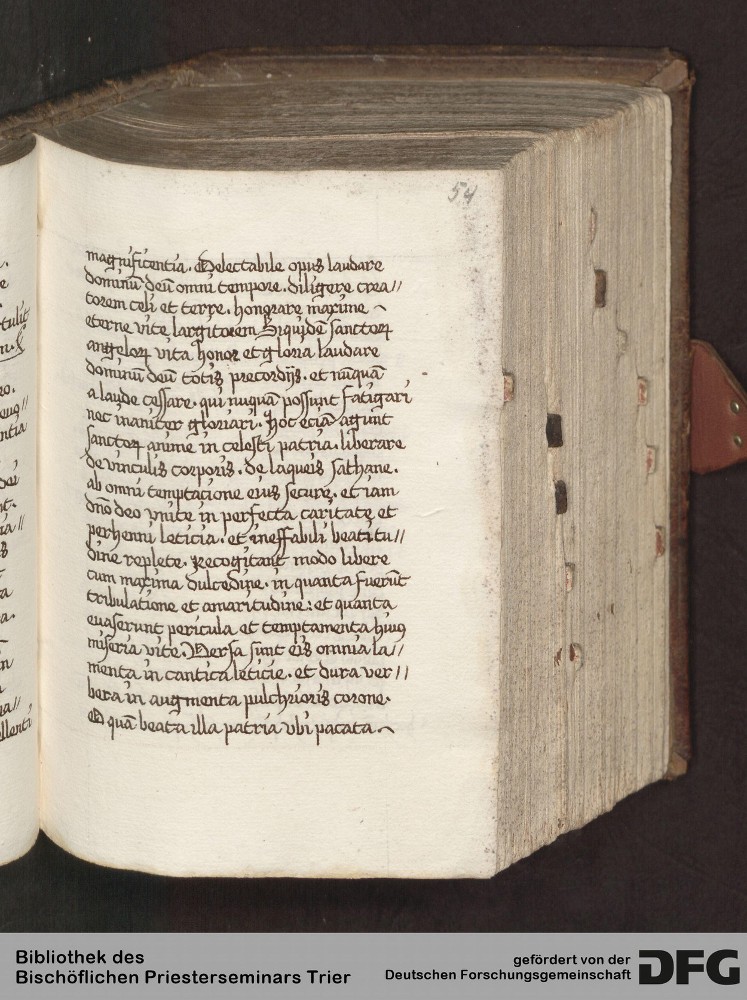 54
magnificentia. Delectabile opus laudare
dominū deū omni tempore. diligere crea//
torem celi et terre. honorare maxime
eterne vite largitorem Siquidē sanctoꝝ
angeloꝝ vita honor et gloria laudare
dominū deū totis precordijs. et nūquā
a laude cessare. qui nuquā possunt fatigari
nec inaniter gloriari. Hoc eciā agunt
sanctoꝝ anime in celesti patria. liberare
de vinculis corporis. de laqueis sathane.
ab omni temptacione eius secure. et iam
dño deo vnite in perfecta caritate et
perhenni leticia. et ineffabili beatitu//
dine replete. Recogitant modo libere
cum maxima dulcedine. in quanta fuerūt
tribulatione et amaritudine: et quanta
euaserunt pericula et temptamenta huiꝰ
miseria vite. Versa sunt eis omnia la//
menta in cantica leticie. et dura ver//
bera in augmenta pulchrioris corone.
O quā beata illa patria vbi pacata
Bibliothek des
Bischöflichen Priesterseminars Trier
gefördert von der
Deutschen Forschungsgemeinschaft
DFG